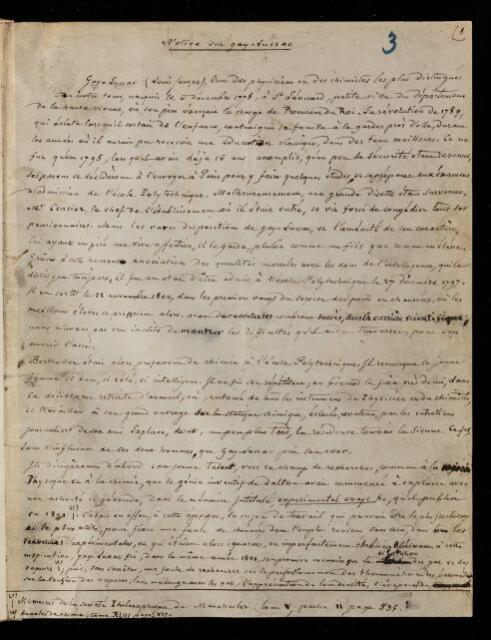 3
1
Notice sur gay-Lussac
Gay-Lussac (Louis Joseph), l'un des physiciens et des chimistes les plus distingués
de notre tems, naquit le 6 décembre 1778, à St Léonard, petite ville du département
de la haute vienne, où son père exerçait la charge de Procureur du Roi. La révolution de 1789,
qui éclata lorsqu'il sortait de l'enfance, contraignit sa famille à le garder près d'elle, durant
les années où il aurait pu recevoir une éducation classique, dans des tems meilleurs. Ce ne
fut qu'en 1795, lorsqu'il avait déjà 16 ans accomplis, qu'un peu de sécurité étant revenue,
ses parens se décidèrent à l'envoyer à Paris pour y faire quelques études, et se préparer aux examens
d'admission de l'école Polytechnique. Malheureusement, une grande disette étant survenue,
Mr Censier, le chef de l'établissement où il était entré, se vit forcé de congédier tous ses
pensionnaires. Mais les rares dispositions de gay-Lussac, et l'aménité de son caractère,
lui ayant inspiré une vive affection, il le garda, plutôt comme un fils que comme un élève.
Grâce à cette heureuse association des qualités morales avec les dons de l'intelligence, qui le
distingua toujours, il fut en état d'être admis à l'école Polytechnique le 27 décembre 1797.
Il en sortit le 22 novembre 1800, dans les premiers rangs du service des ponts et chaussées, où les
meilleurs élèves se pressaient alors, avant de succès, dans la carrière scientifique,
nous n'avons pas cru inutile de montrer les difficultés qu'il a dû traverser, pour s'en
ouvrir l'accès.
Berthollet était alors professeur de chimie à l'école Polytechnique. Il remarqua ce jeune
homme si bon, si zélé, si intelligent. Il en fit son répétiteur, et bientôt le fixa près de lui, dans
sa délicieuse retraite d'arcueil, où, entouré de tous les instrumens du Physicien et du chimiste,
il travaillait à son grand ouvrage sur la statique chimique, éclairé, soutenu, par les entretiens
journaliers de son ami Laplace, dont, un peu plus tard, la résidence touchait la sienne. Ce fut
sous l'influence de ces deux hommes, que Gay-Lussac prit son essor.
Ils dirigèrent d'abord son jeune talent, vers ce champ de recherches, commun à la
Physique et à la chimie, que le génie inventif de dalton avait commencé à explorer avec
une audace si féconde, dans le mémoire intitulé experimental essays &c, qu'il publia
en 1801 (1). C'était en effet, à cette époque, le sujet de travail qui pouvait être le plus justement
et le plus utile, pour fixer une foule de données dont l'emploi revient sans cesse, dans les
expérimentales, et qui étaient alors ignorées, ou imparfaitement établies. Obéissant à cette
inspiration, gay-Lussac fit, dans la même année 1801, son premier mémoire sur la dilatation des gaz et des
vapeurs (2); puis, sans s'arrêter, une foule de recherches sur le perfectionnement des thermomètres et des baromètres,
sur la tension des vapeurs, leur mélange avec les gaz, l'appréciation de leur densité, l'évaporation,
(1) Memoires de la Société Philosophique de Manchester. tome V, partie II page 535.
(2) Annales de chimie, tome XLIII, page 137.